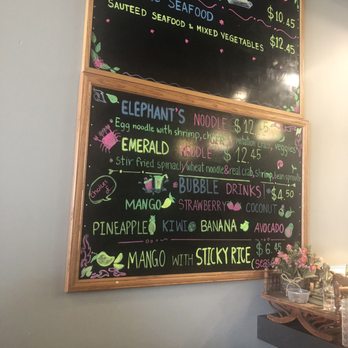 SEAFOOD $10.45
SAUTEED SEAFOOD & MIXED VEGETABLES
$12.45
ELEPHANT'S NOODLE $12.45
Egg noodle with shrimp, veggies
EMERALD NOODLE $12.45
Stir fried spinach/wheat noodle & real crab, shrimp, bean sprouts
BUBBLE DRINKS $4.50
MANGO STRAWBERRY COCONUT
PINEAPPLE KIWI BANANA AVOCADO
$6.45
MANGO WITH STICKY RICE